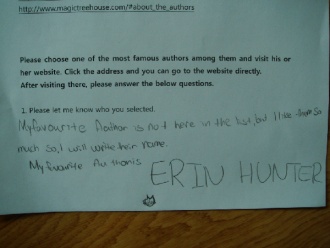 http://www.magictreehouse.com/#about_the_authors
Please choose one of the most famous authors among them and visit his or
her website. Click the address and you can go to the website directly.
After visiting there, please answer the below questions.
1. Please let me know who you selected.
My favourite Author is not here in the list, but I like them so
much so, I will write their name.
My favourite Author is
ERIN HUNTER